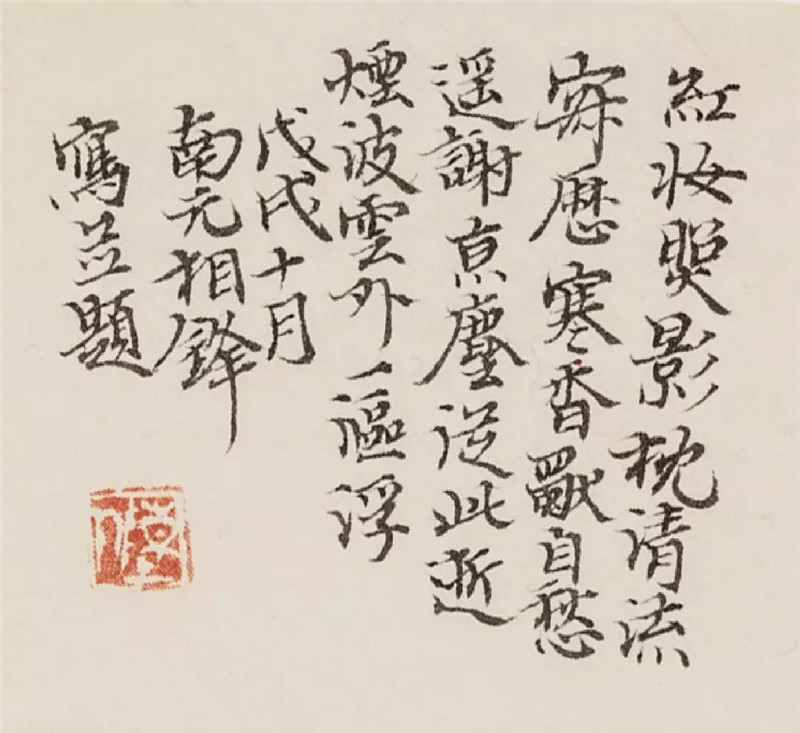 紅妝照影枕清流
寂歷寒香自愁
遥謝京塵從此逝
煙波雲外一漚浮
戊戌十月
南元相鋒
寫並題